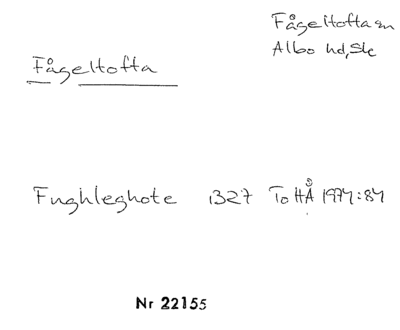 Fågeltofta sn
Albo hd, Sk
Fågeltofta
Fughleghote 1327 To HÅ 1974:84
Nr 22155